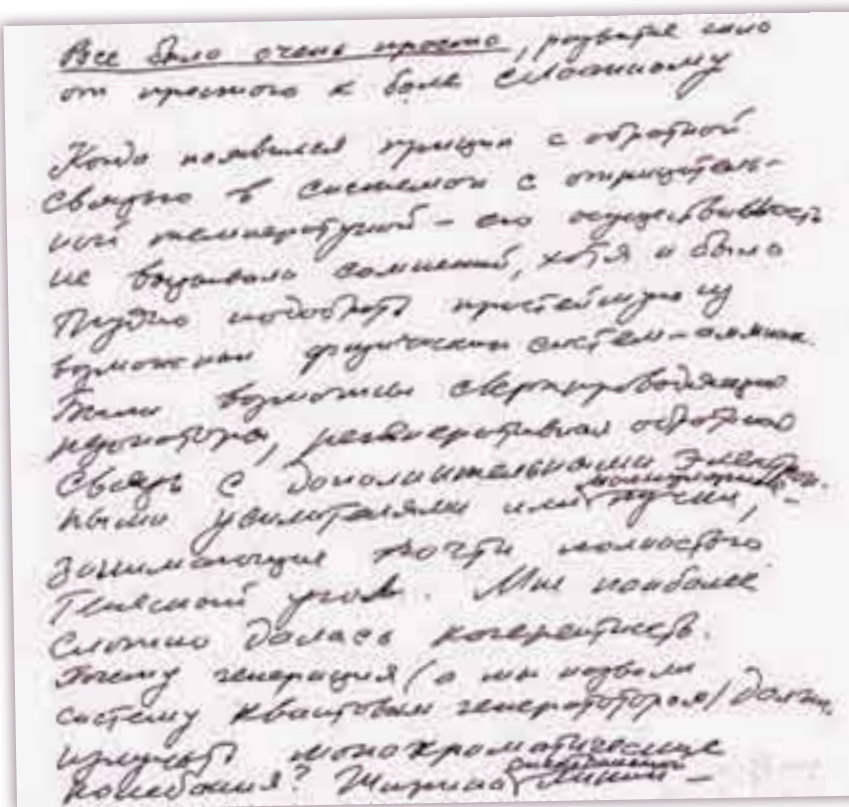 Все было очень просто, развитие шло
от простого к более сложному
Когда появился принцип с обратной
связью в системой с отрицатель-
ной температурой - его осуществимость
не вызывала сомнений, хотя и было
трудно подобрать простейшую из
возможных физических систем - аммиак.
Были возможны сверхпроводящие
резонаторы, регенеративная обратная
связь с дополнительными электрон.
ными усилителями или пучки, -
занимающие почти полностью
телесный угол. Мне наиболее
сложно далась когерентность.
Почему генерация (а мы назвали
систему квантовым генератором) должн.
излучать монохроматические
колебания? Ширина спектральной линии -